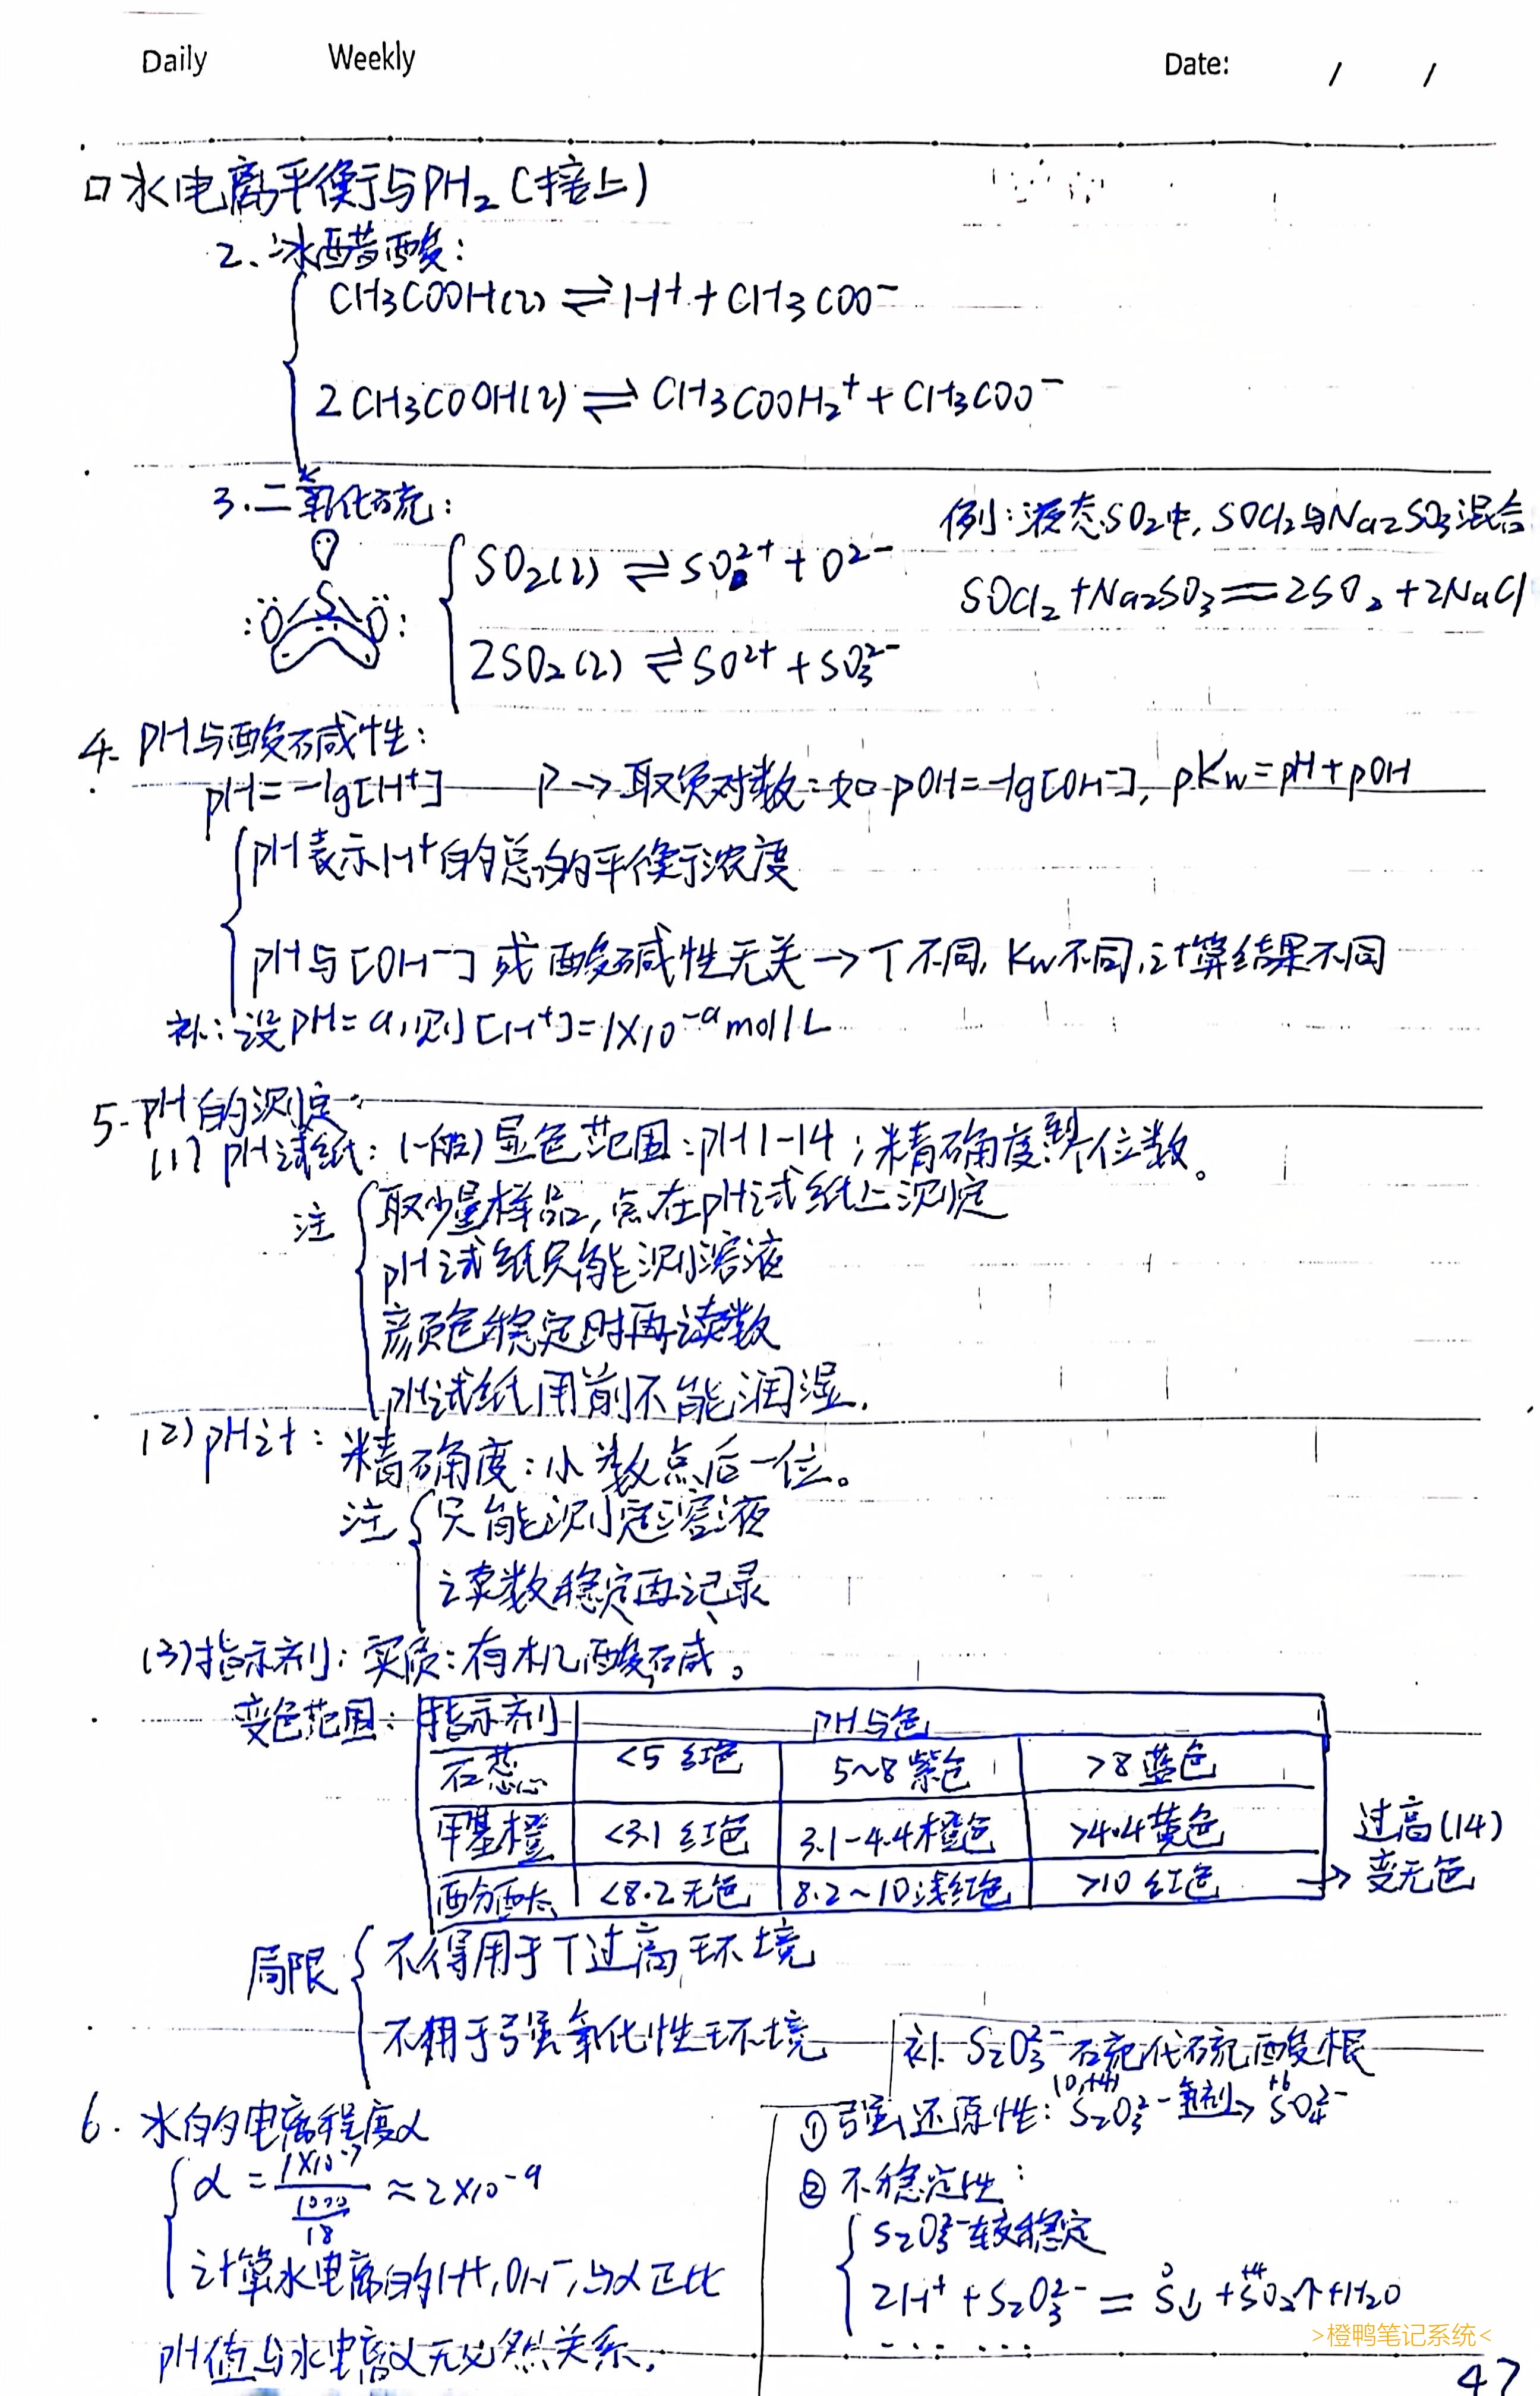 Daily Weekly Date: / /
口水电离平衡与PH₂(接上)
2、冰醋酸:
CH₃COOH(l) ⇌ H⁺ + CH₃COO⁻
2CH₃COOH(l) ⇌ CH₃COOH₂⁺ + CH₃COO⁻
3.二氧化硫:
例:液态SO₂中,SOCl₂与Na₂SO₃混合
SO₂(l) ⇌ SO²⁺ + O²⁻
SOCl₂+Na₂SO₃══2SO₂+2NaCl
:Ö S Ö:
2SO₂(l) ⇌ SO²⁺ + SO₃²⁻
4. PH与酸碱性:
pH=-lg[H⁺] —— P→取负对数:如pOH=-lg[OH⁻], pKw=pH+pOH
pH表示H⁺的总的平衡浓度
pH与[OH⁻]或酸碱性无关→T不同,Kw不同,计算结果不同
补:设PH=a,则[H⁺]=1×10⁻ᵃmol/L
5-PH的测定
(1) PH试纸:(一般)显色范围:pH1-14;精确度到个位数。
注 取少量样品,点在pH试纸上测定
pH试纸只能测溶液
颜色稳定时再读数
pH试纸用前不能润湿.
(2)pH计:精确度:小数点后一位。
注 只能测定溶液
读数稳定再记录
(3)指示剂:实质:有机酸碱。
变色范围: 指示剂 PH与色
石蕊 <5 红色 5~8 紫色 >8 蓝色
甲基橙 <3.1 红色 3.1-4.4橙色 >4.4黄色
酚酞 <8.2 无色 8.2~10浅红色 >10 红色 → 过高(14)变无色
局限 不得用于T过高环境
不用于强氧化性环境
补. S₂O₃²⁻ 硫代硫酸根
(0,+4) +6
①强还原性: S₂O₃²⁻ 氧剂→ SO₄²⁻
②不稳定性:
S₂O₃²⁻较稳定
0 +4
2H⁺ + S₂O₃²⁻ = S↓+SO₂↑+H₂O
......
6. 水的电离程度α
α = 1×10⁻⁷ / (1000/18) ≈ 2×10⁻⁹
计算水电离的H⁺,OH⁻,与α正比
PH值与水电离α无必然关系.
>橙鸭笔记系统<
47